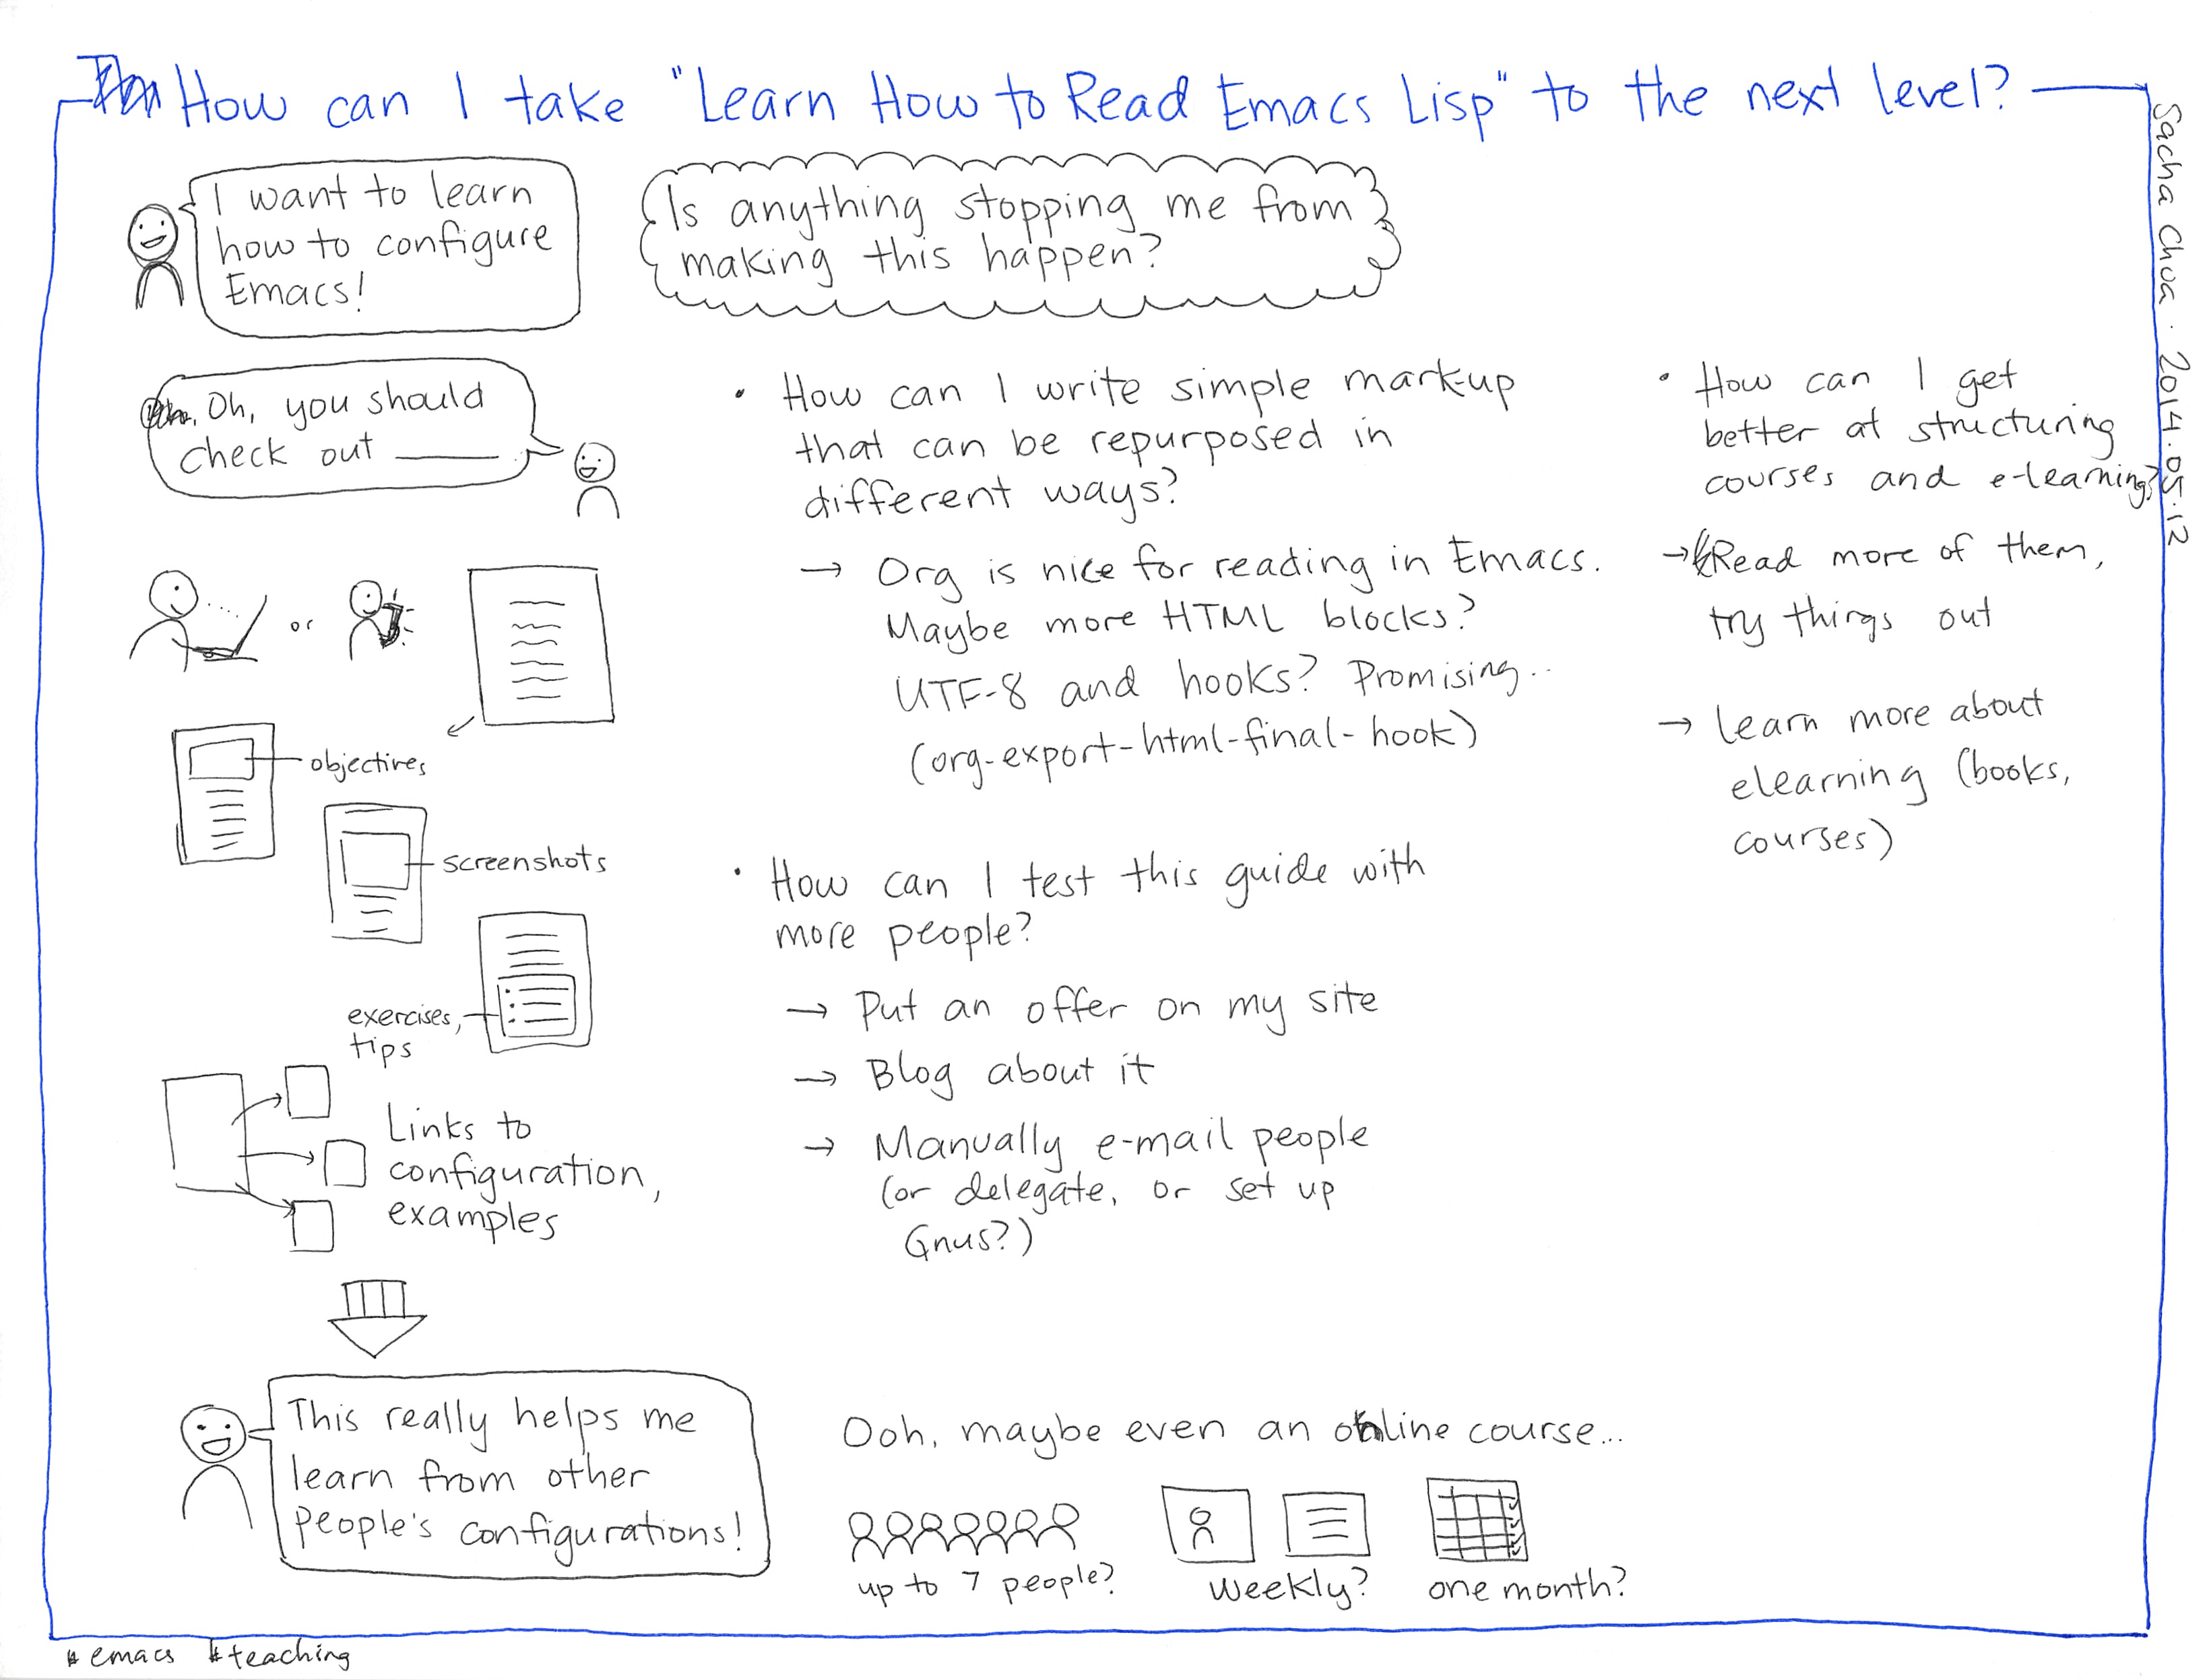 How can I take "Learn How to Read Emacs Lisp" to the next level?
Sacha Chua · 2014.05.12
I want to learn
how to configure
Emacs!
Is anything stopping me from
making this happen?
Oh, you should
check out ______
or
objectives
screenshots
exercises,
tips
Links to
configuration,
examples
This really helps me
learn from other
people's configurations!
• How can I write simple markup
that can be repurposed in
different ways?
→ Org is nice for reading in Emacs.
Maybe more HTML blocks?
UTF-8 and hooks? Promising..
(org-export-html-final-hook)
• How can I test this guide with
more people?
→ Put an offer on my site
→ Blog about it
→ Manually e-mail people
(or delegate, or set up
Gnus?)
• How can I get
better at structuring
courses and e-learning?
→ Read more of them,
try things out
→ Learn more about
elearning (books,
courses)
Ooh, maybe even an online course...
up to 7 people?
weekly?
one month?
#emacs #teaching